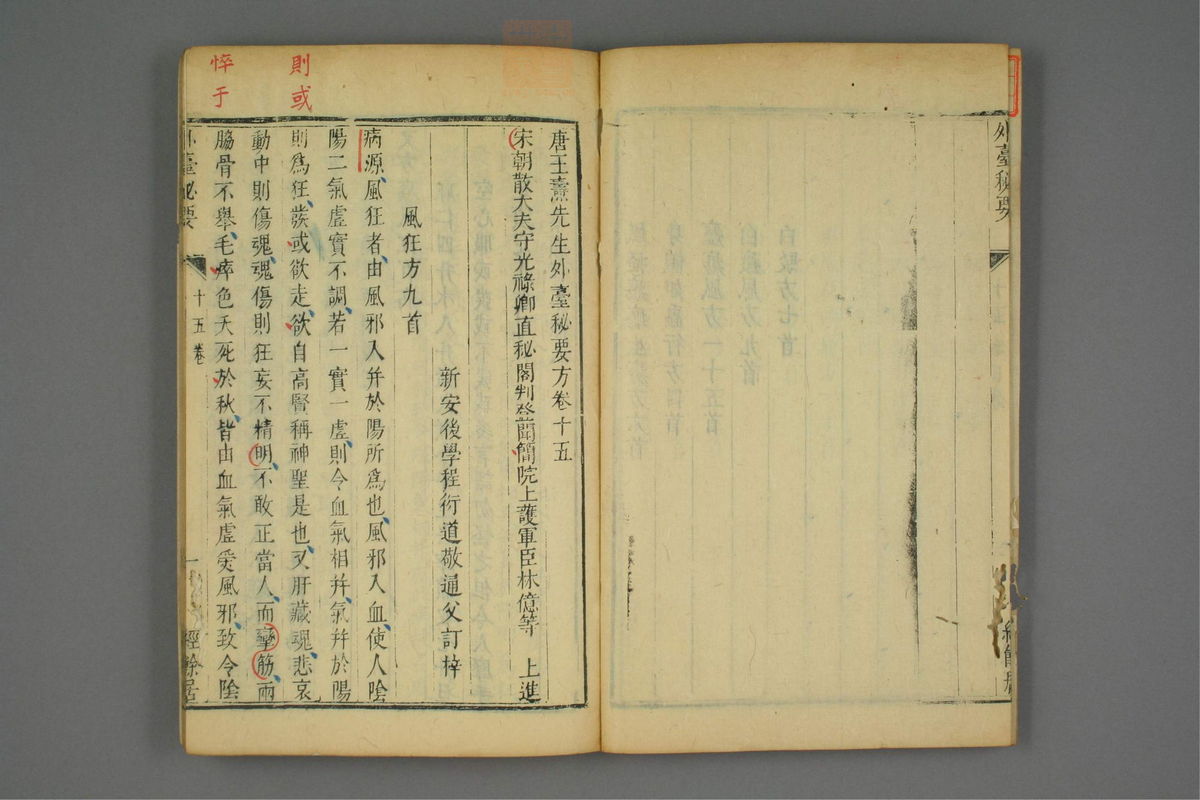 外臺秘要
唐王燾先生外臺秘要方卷十五
宋朝散大夫守光祿卿直秘閣判登聞簡院上護軍臣林億等 上進
新安後學程衍道敬通父訂梓
風狂方九首
病源風狂者由風邪入并於陽所為也風邪入血使人陰
陽二氣虛實不調若一實一虛則令血氣相并氣并於陽
則為狂發或欲走欲自高賢稱神聖是也又肝藏魂悲哀
動中則傷魂魂傷則狂妄不精明不敢正當人而攣筋兩
脇骨不舉毛瘁色夭死於秋皆由血氣虛受風邪致令陰
外臺秘要 十五卷 一 經餘居
則或
悴于